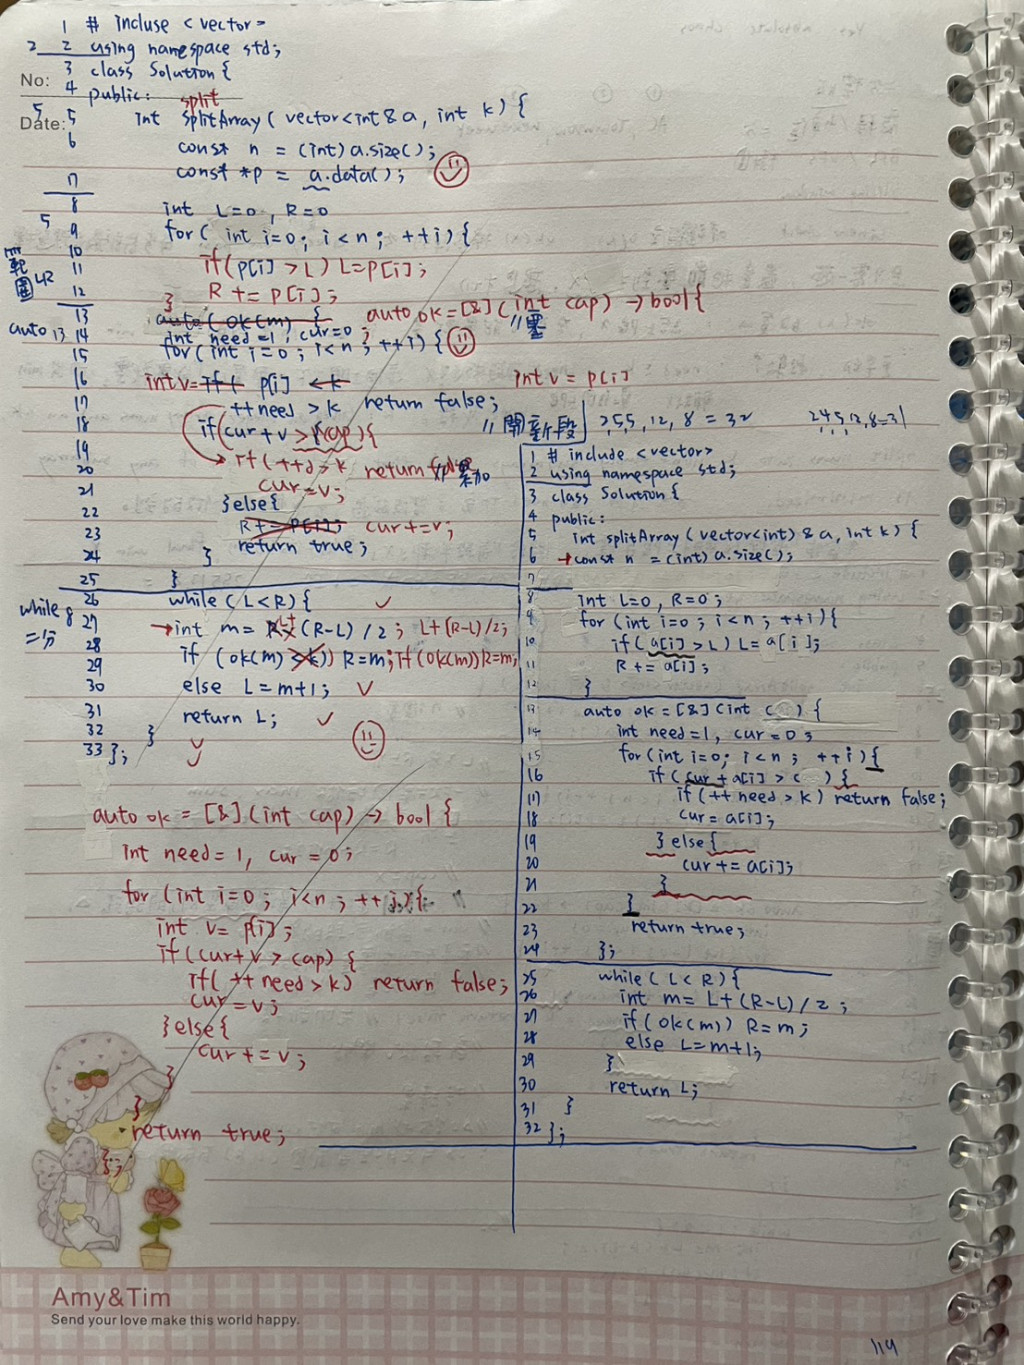 1 # incluse <vector>
2 2 using namespace std;
3 class Solution {
No:
4 public:
split
Date:
5 5 int splitArray( vector<int & a, int k) {
6 const n = (int) a.size();
7 const *p = a.data();
8 int L=0, R=0
5 9 for( int i=0; i<n; ++i){
10 if(p[i]>L) L=p[i];
範圍 42 11
12 R += p[i];
}
13 auto(ok(m) { auto ok=[&](int cap) -> bool{
auto 13 14 int need=1, cur=0;
15 for(int i=0; i<n; ++i) {
16 int v= if( p[i] <k int v = p[i]
17 ++need > k return false;
18 if(cur+v > cap){
// 開新段
19 if(++d>k return false
20 // 累加
21 cur=v;
22 }else{
23 R+=p[i]; cur+=v;
return true;
24 }
25 }
while 8
二分
26 while(L<R){
27 int m = L+ (R-L)/2; L+(R-L)/2;
28 if (ok(m) >k)) R=m; if(ok(m))R=m;
29
30 else L=m+1;
31 return L;
32 }
33 };
auto ok = [&](int cap) -> bool {
int need=1, cur=0;
for (int i=0; i<n; ++i){
int v= p[i];
if(cur+v > cap) {
if( ++need>k) return false;
cur=v;
}else{
cur+=v;
}
}
return true;
};
255, 12, 8 = 32
1 # include <vector>
2 using namespace std;
3 class Solution {
4 public:
5 int splitArray (vector<int) & a, int k) {
6 const n = (int) a.size();
7
8 int L=0, R=0;
9 for (int i=0; i<n; ++i){
10 if(a[i]>L) L=a[i];
11 R += a[i];
12 }
13 auto ok = [&](int c ) {
14 int need=1, cur=0;
15 for(int i=0; i<n; ++i){
16 if(cur+a[i]>c ) {
17 if(++need>k) return false;
18 cur=a[i];
19 }else{
20 cur+=a[i];
21 }
22 }
23 return true;
24 };
25 while(L<R){
26 int m= L+(R-L)/2;
27 if(ok(m)) R=m;
28 else L=m+1;
29 }
30 return L;
31 }
32 };
Amy&Tim
Send your love make this world happy.